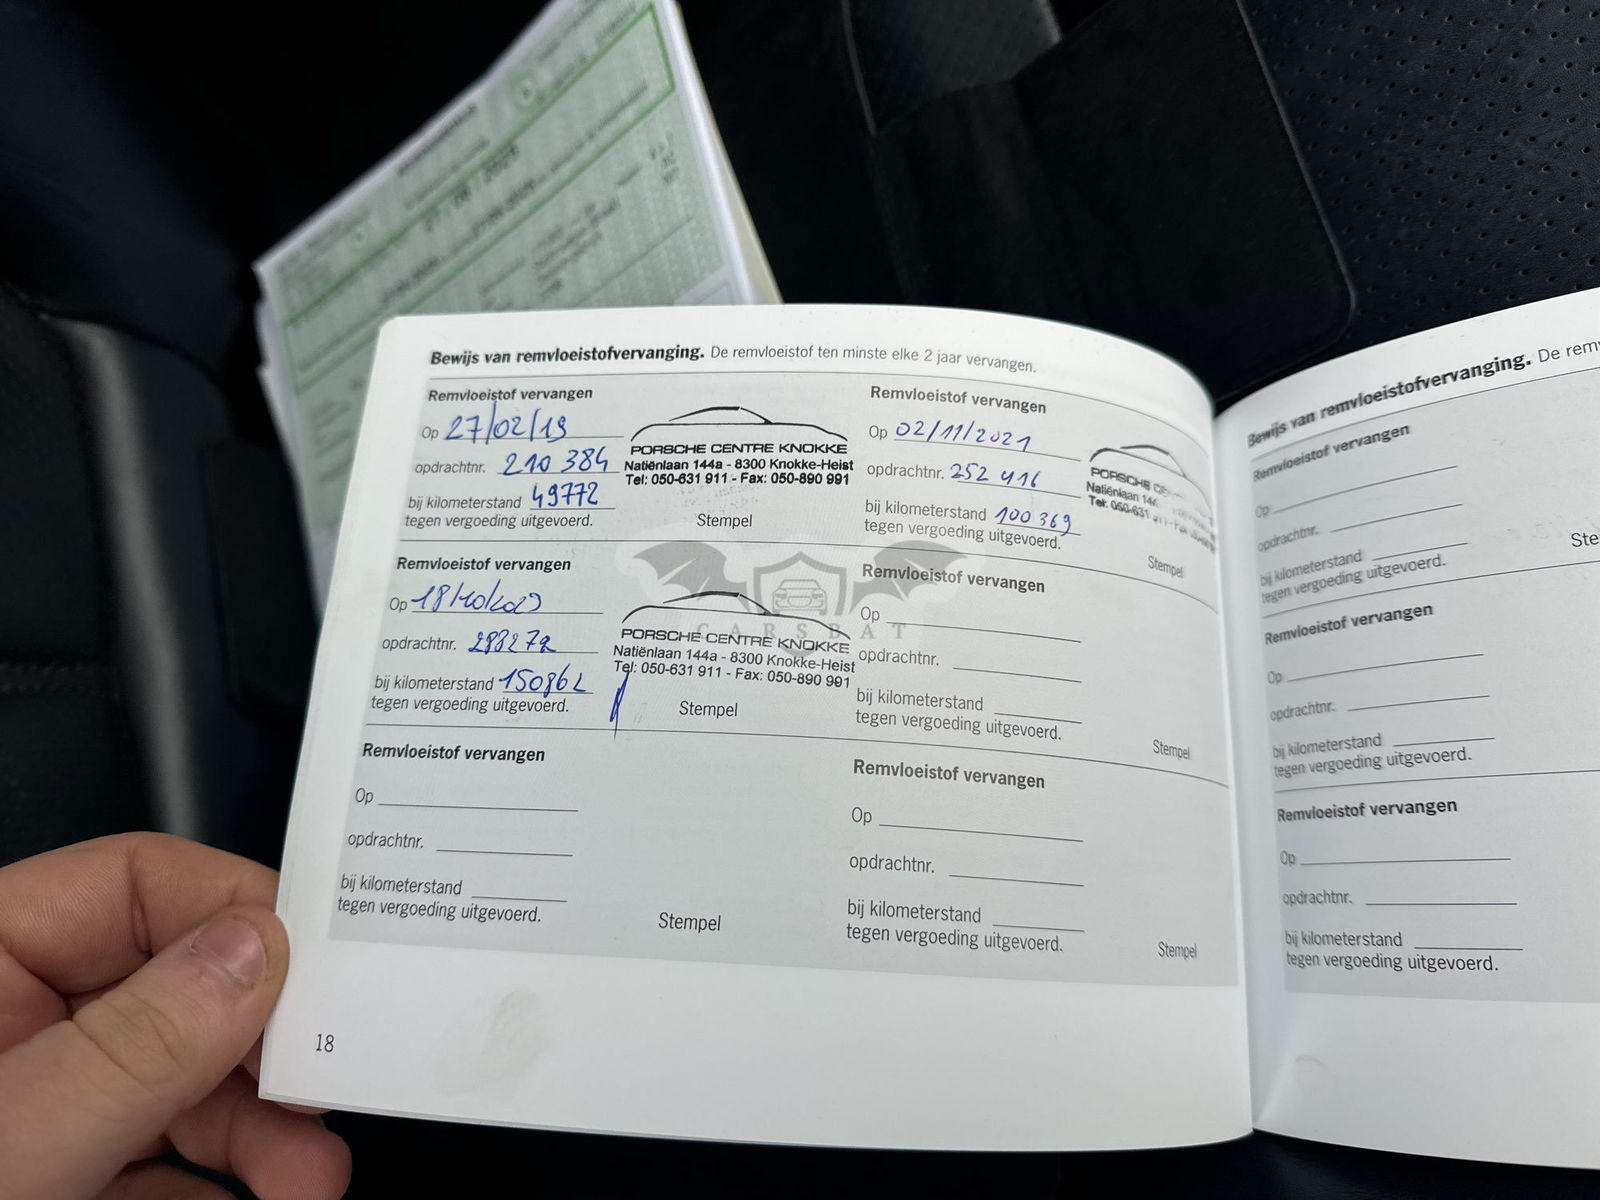 Bewijs van remvloeistofvervanging. De remvloeistof ten minste elke 2 jaar vervangen.
Remvloeistof vervangen
Op 27/02/19
opdrachtnr. 210 384
bij kilometerstand 49772
tegen vergoeding uitgevoerd.
PORSCHE CENTRE KNOKKE
Natiënlaan 144a - 8300 Knokke-Heist
Tel: 050-631 911 - Fax: 050-890 991
Stempel
Remvloeistof vervangen
Op 02/11/2021
opdrachtnr. 252 416
bij kilometerstand 100 369
tegen vergoeding uitgevoerd.
PORSCHE
Natiënlaan
Tel: 050-631
Stempel
Remvloeistof vervangen
Op
opdrachtnr.
bij kilometerstand
tegen vergoeding uitgevoerd.
PORSCHE CENTRE KNOKKE
Natiënlaan 144a - 8300 Knokke-Heist
Tel: 050-631 911 - Fax: 050-890 991
Stempel
CARSBAT
Remvloeistof vervangen
Op
opdrachtnr.
bij kilometerstand
tegen vergoeding uitgevoerd.
Stempel
Remvloeistof vervangen
Op
opdrachtnr.
bij kilometerstand
tegen vergoeding uitgevoerd.
Stempel
Remvloeistof vervangen
Op
opdrachtnr.
bij kilometerstand
tegen vergoeding uitgevoerd.
Stempel
18
Bewijs van remvloeistofvervanging. De
Remvloeistof vervangen
Op
opdrachtnr.
bij kilometerstand
tegen vergoeding uitgevoerd.
Remvloeistof vervangen
Op
opdrachtnr.
bij kilometerstand
tegen vergoeding uitgevoerd.
Remvloeistof vervangen
Op
opdrachtnr.
bij kilometerstand
tegen vergoeding uitgevoerd.